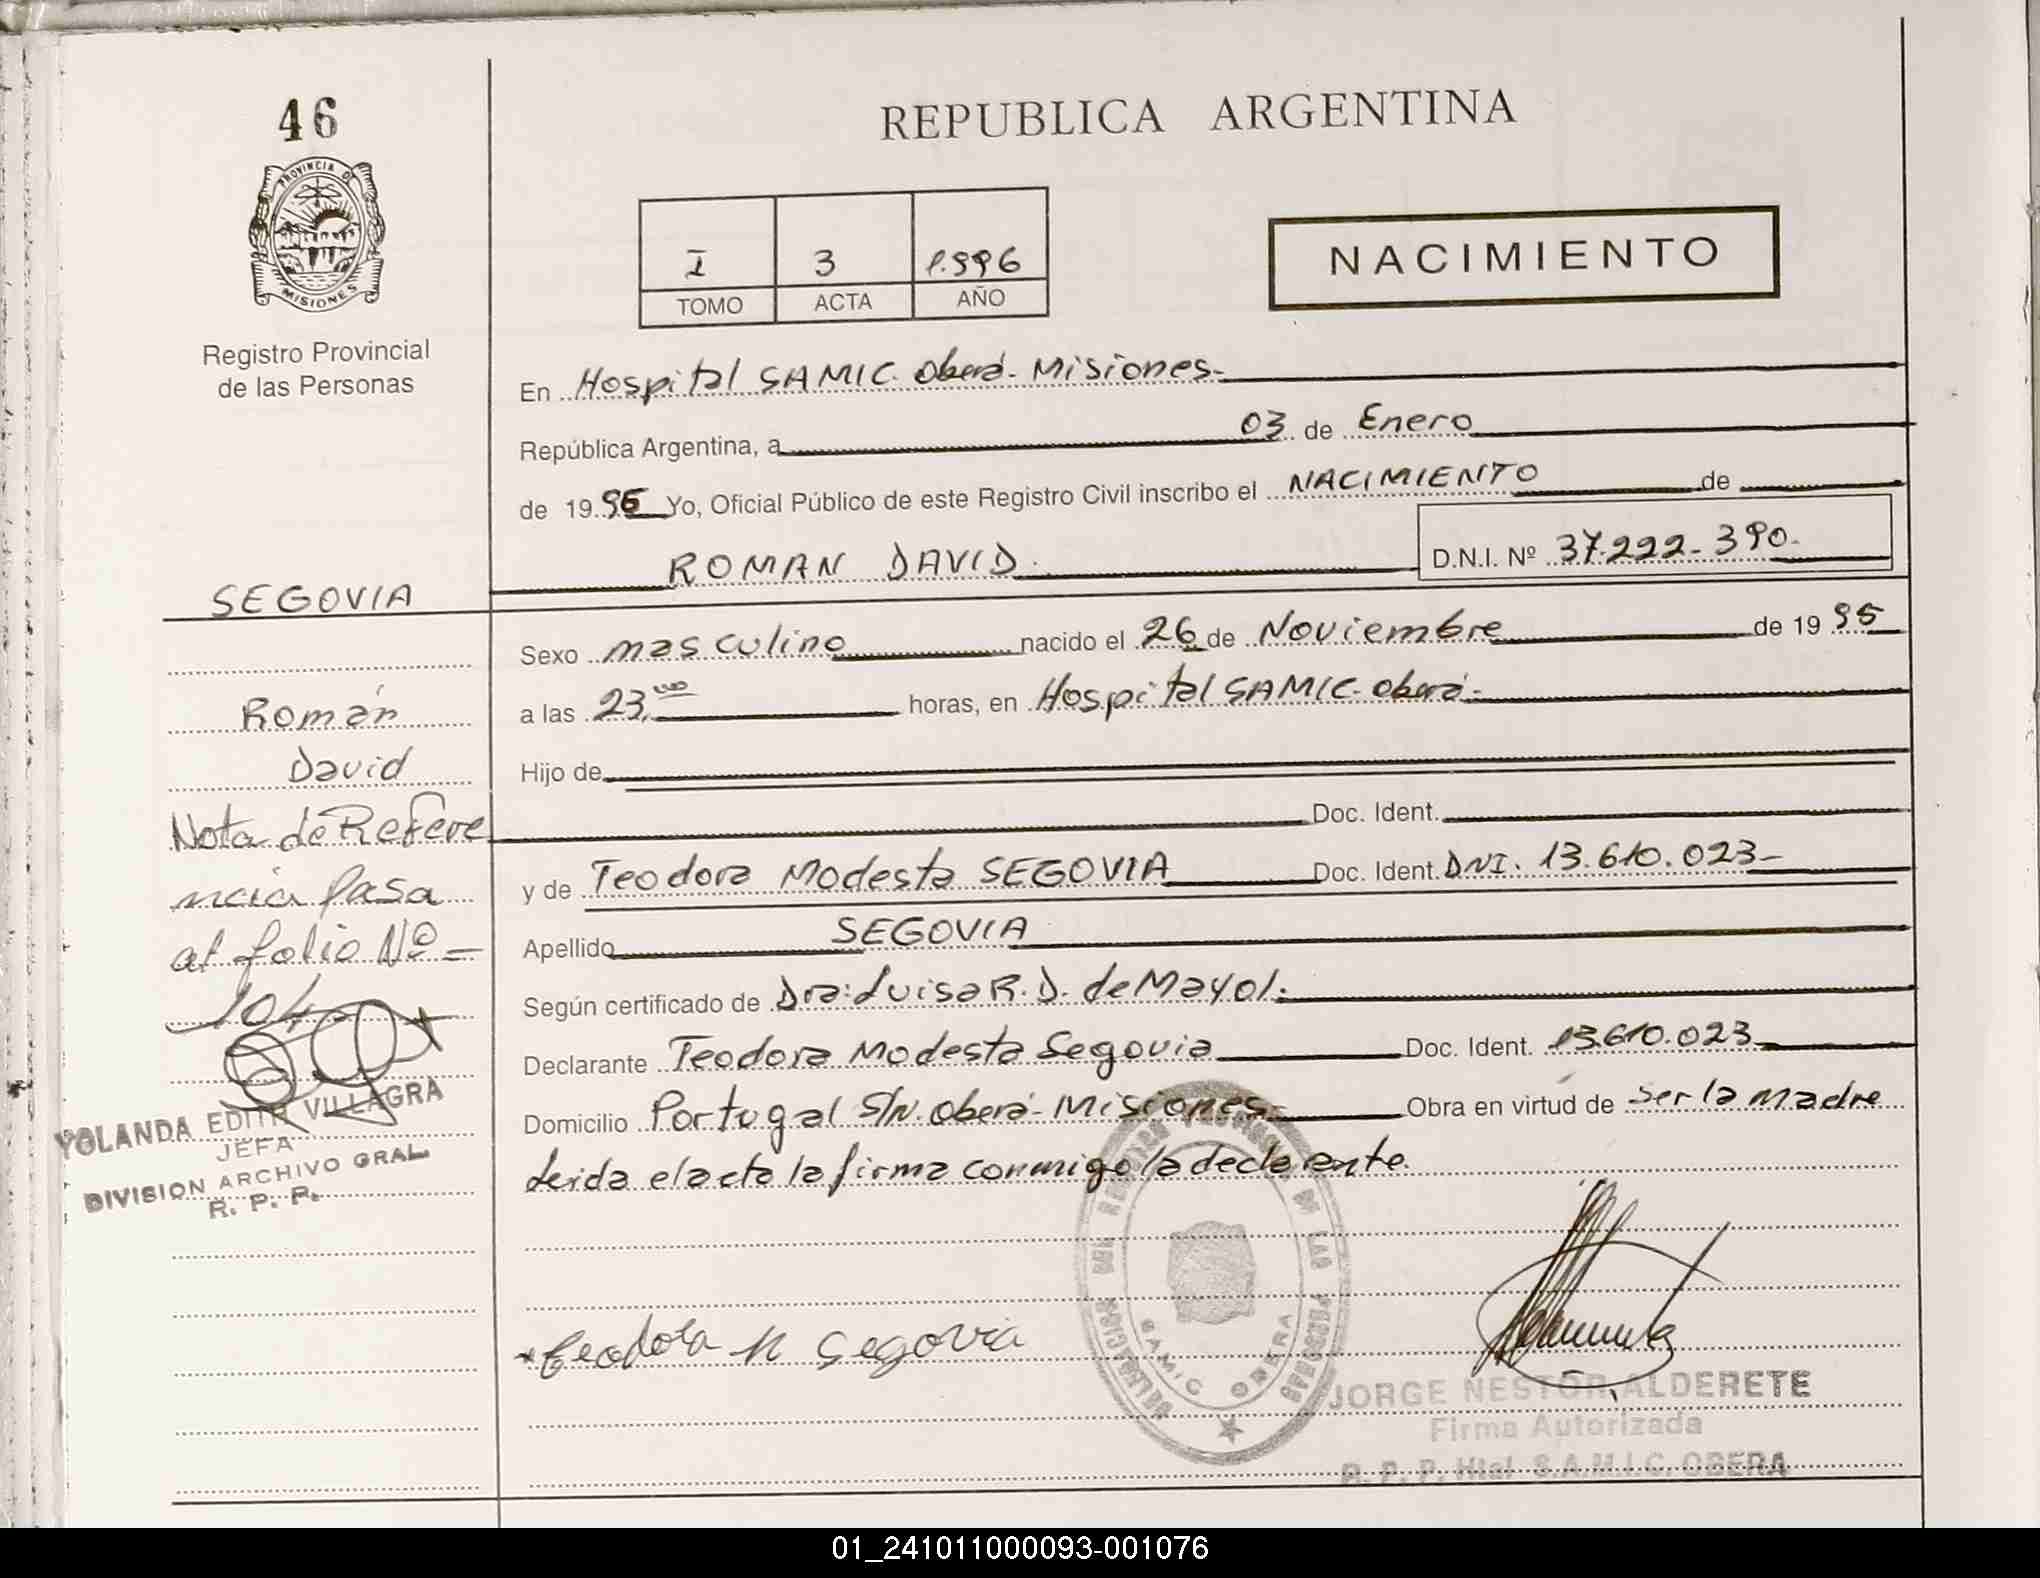 46
PROVINCIA D
MISIONES
Registro Provincial
de las Personas
SEGOVIA
Román
David
Nota de Refere
ncia Pasa
al folio Nº
104
YOLANDA EDITH VILLAGRA
JEFA
DIVISION ARCHIVO GRAL
R. P. P.
REPUBLICA ARGENTINA
I 3 1.996
TOMO ACTA AÑO
NACIMIENTO
En Hospital SAMIC. Oberá- Misiones-
República Argentina, a 03 de Enero
de 1996 Yo, Oficial Público de este Registro Civil inscribo el NACIMIENTO de
ROMAN DAVID. D.N.I. Nº 37.222-390-
Sexo masculino nacido el 26 de Noviembre de 1995
a las 23,00 horas, en Hospital SAMIC- Oberá-
Hijo de
Doc. Ident.
y de Teodora Modesta SEGOVIA Doc. Ident. DNI. 13.610.023-
Apellido SEGOVIA
Según certificado de Dra: Luisa R. D. de Mayol.
Declarante Teodora Modesta Segovia Doc. Ident. 13.610.023
Domicilio Portugal S/N. Oberá- Misiones- Obra en virtud de ser la madre
Leida el acta la firma conmigo la declarante.
Teodora M Segovia
DELEGACION DEL REGISTRO PROVINCIAL DE LAS PERSONAS
SAMIC OBERA
JORGE NESTOR ALDERETE
Firma Autorizada
R. P. P. Htal S.A.M.I.C. OBERA
01_241011000093-001076